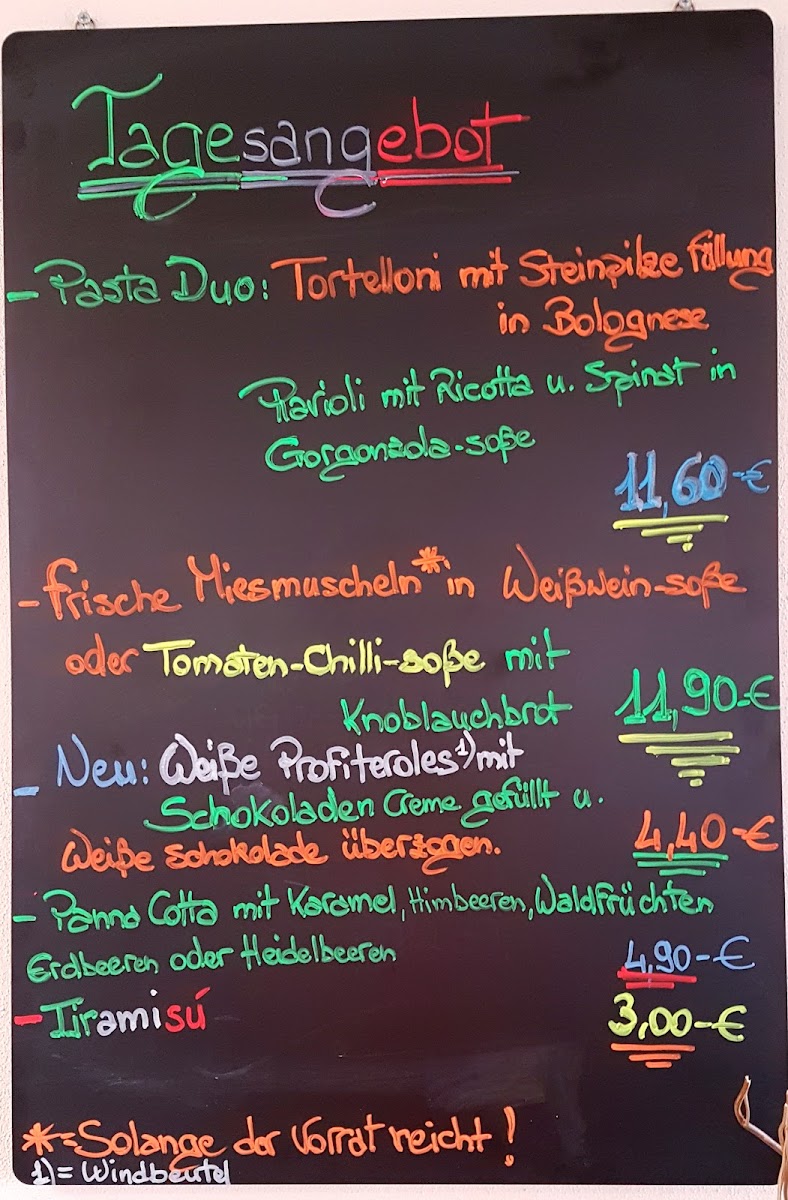 Tagesangebot
- Pasta Duo: Tortelloni mit Steinpilze Füllung
in Bolognese
Ravioli mit Ricotta u. Spinat in
Gorgonzola-soße
11,60-€
- Frische Miesmuscheln* in Weißwein-soße
oder Tomaten-Chilli-soße mit
Knoblauchbrot 11,90-€
- Neu: Weiße Profiteroles 1) mit
Schokoladen Creme gefüllt u.
Weiße Schokolade überzogen. 4,40-€
- Panna Cotta mit Karamel, Himbeeren, Waldfrüchten
Erdbeeren oder Heidelbeeren 4,90-€
- Tiramisú 3,00-€
*=Solange der Vorrat reicht!
1)= Windbeutel